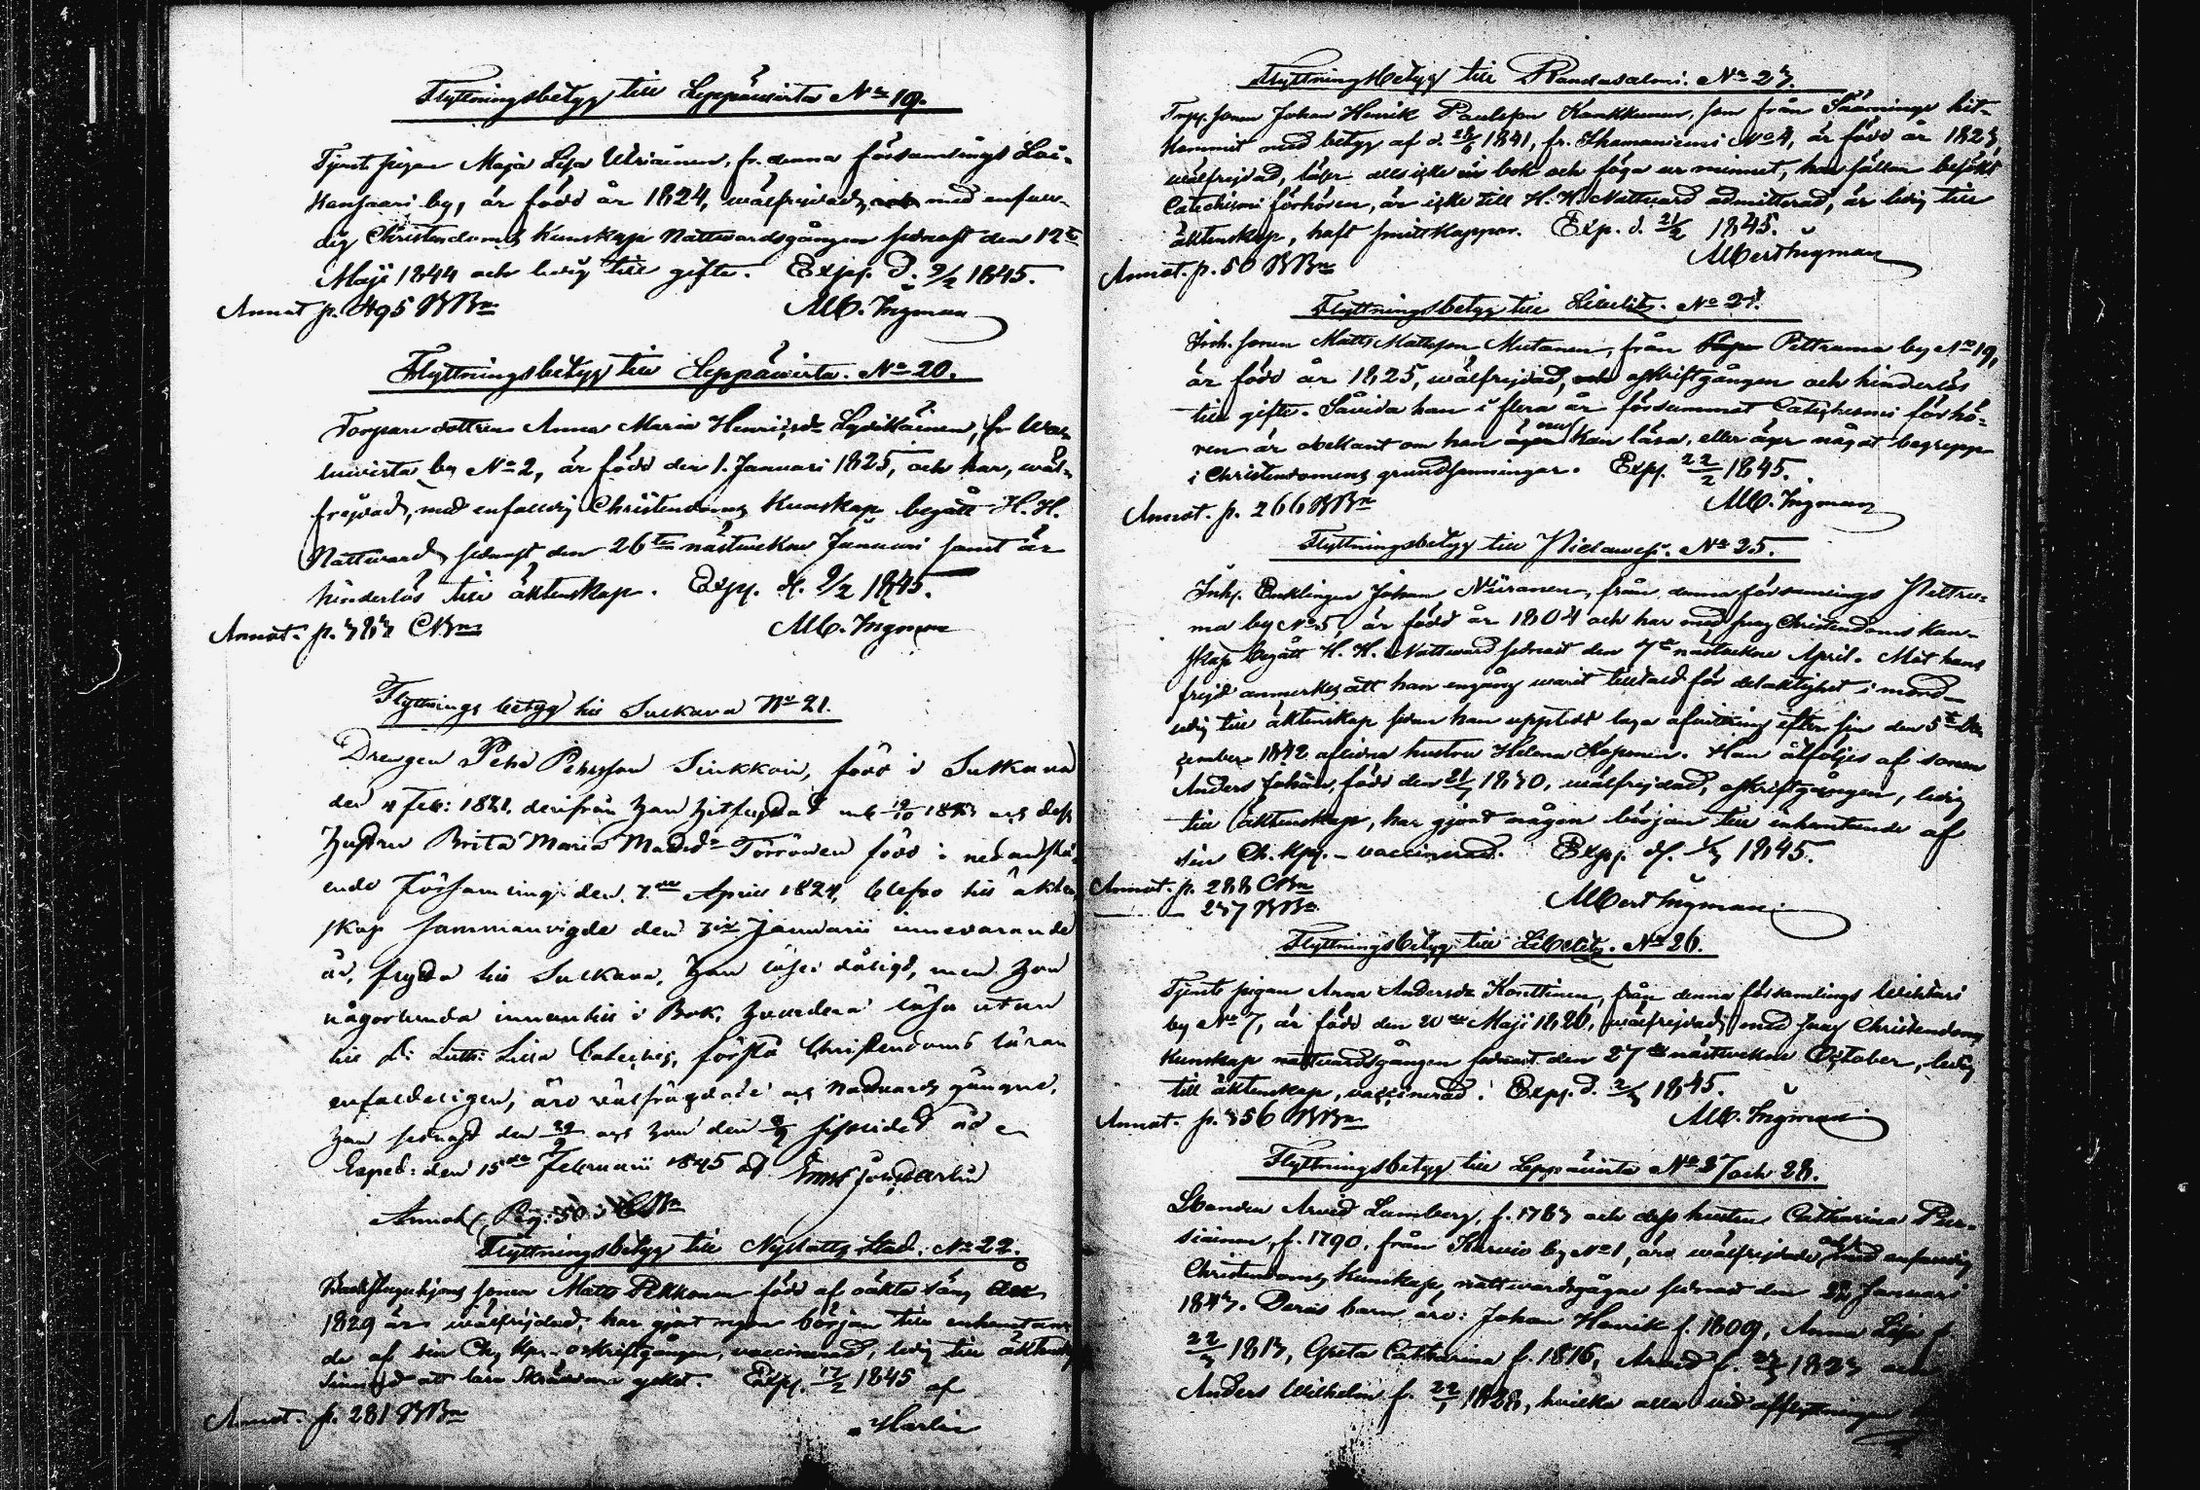 Flyttningsbetyg till Leppävirta No 19.
Tjenst pigan Maja Lisa Väriäinen, fr. denna församlings Lai-
kansaari by, är född år 1824, wälfrejdad, med enfal-
dig Christendoms kunskap Nattvardsgången sednast den 12te
Maji 1844 och ledig till gifte. Exp. d. 9/2 1845.
Annot p. 495 BBn
Alb. Ingman
Flyttningsbetyg till Leppävirta. No 20.
Torpare dottren Anna Maria Henricsdr Lyytikäinen, fr
by No 2, är född den 1. Januari 1825, och har, wäl-
frejdad, med enfaldig Christendoms Kunskap begått H. H.
Nattvard, sednast den 26te nästvekne Januari samt är
hinderlös till äktenskap. Exp. d. 9/2 1845.
Annot. p. 387 CBn
Alb. Ingman
Flyttnings betyg till Sulkava No 21.
Drengen Pehr Pehrsson Sinkkoin, född i Sulkava
den 4 Feb: 1821. derifrån han hitflyttad med 19/10 1843 och dess
hustru Brita Maria Madsdr Torvinen född i nedanstå-
ende Församling den 7de April 1824, blefvo till äkten-
skap sammanvigde den 3die Januarii innevarande
år, flytta till Sulkava, han läser dåligt, men hon
någorlunda innantill i Bok, hvardera läsa utan
till D: Luth: Lilla Cateches, förstå Christendoms läran
enfaldeligen, äro välfrägdade och Nattvards gångne,
han sednast den och hon den sistlidet år
Exped: den 15de Februarii 1845 af
Annot. Pag: 50 i CBn
Flyttningsbetyg till Nyslotts Stad. No 22.
sonen Matts Pekkonen född af oäkta säng
1829 är wälfrejdad, har gjort någon början till inhemtan-
de af sin Chr. kp. oskriftgången, vaccinerad, ledig till äktensk.
att lära Skräddare yrket. Exp. 17/2 1845 af
Annot. p. 281 BBn
Harlin
Flyttningsbetyg till Randasalmi. No 23.
Torp. sonen Johan Henrik Paulsson Kankkunen, som från Sääminge hit-
kommit med betyg af d. 28/6 1841, fr. Ihamaniemi No 4, är född år 1823,
wälfrejdad, läser alls icke i bok och föga ur minnet, har sällan besökt
Catechismi förhören, är icke till H. H. Nattvard admitterad, är ledig till
äktenskap, haft smittkoppor. Exp. d. 21/2 1845.
Albert Ingman
Annot. p. 50 BBn
Flyttningsbetyg till Libelitz. No 24.
Inh. sonen Matts Mattsson Mutanen, från Pettruma by No 19,
är född år 1825, wälfrejdad, oskriftgången och hinderlös
till gifte. Såvida han i flera år försummat Catechismi förhö-
ren är obekant om han kan läsa, eller äger något begrepp
i Christendomens grundsanningar. Exp. 22/2 1845.
Annot. p. 266 BBn
Alb. Ingman
Flyttningsbetyg till Pielavesi. No 25.
Inh. Enklingen Johan Niiranen, från denna församlings Pettru-
ma by No 5, är född år 1804 och har med svag Christendoms Kun-
skap begått H. H. Nattvard sednast den 7de nästvekne April. Mot hans
frejd anmerkes att han engång warit tilltald för delaktighet i mord
ledig till äktenskap sedan han upptedt laga afvittring efter sin den 5te De-
cember 1842 aflidna hustru Helena Kaponen. Han åtföljes af sonen
Anders Johan, född den 21/1 1830, wälfrejdad, oskriftgången, ledig
till äktenskap, har gjort någon början till inhemtande af
sin Ch. kp. – vaccinerad. Exp. d. 1/3 1845.
Annot. p. 288 CBn
— 237 BBn
Albert Ingman
Flyttningsbetyg till Libelitz. No 26.
Tjenste pigan Anna Andersdr Konttinen, från denna församlings Wihtari
by No 7, är född den 20de Maji 1826, wälfrejdad, med svag Christendoms
kunskap nattvardsgången sednast den 27de nästvekne October, ledig
till äktenskap, vaccinerad. Exp. d. 2/3 1845.
Annot. p. 356 BBn
Alb. Ingman
Flyttningsbetyg till Leppävirta No 27 och 28.
Arvid Lumberg, f. 1783 och dess hustru Catharina
f. 1790, från by No 1, äro wälfrejdade, med enfaldig
Christendoms kunskap, nattvardsgågne sednast den Januari
1843. Deras barn äro: Johan Henrik f. 1809, Anna Lisa f.
22/3 1813, Greta Catharina f. 1816, Arvid f. 1823 och
Anders Wilhelm f. 22/1 1828, hvilka alla vid afflyttningen